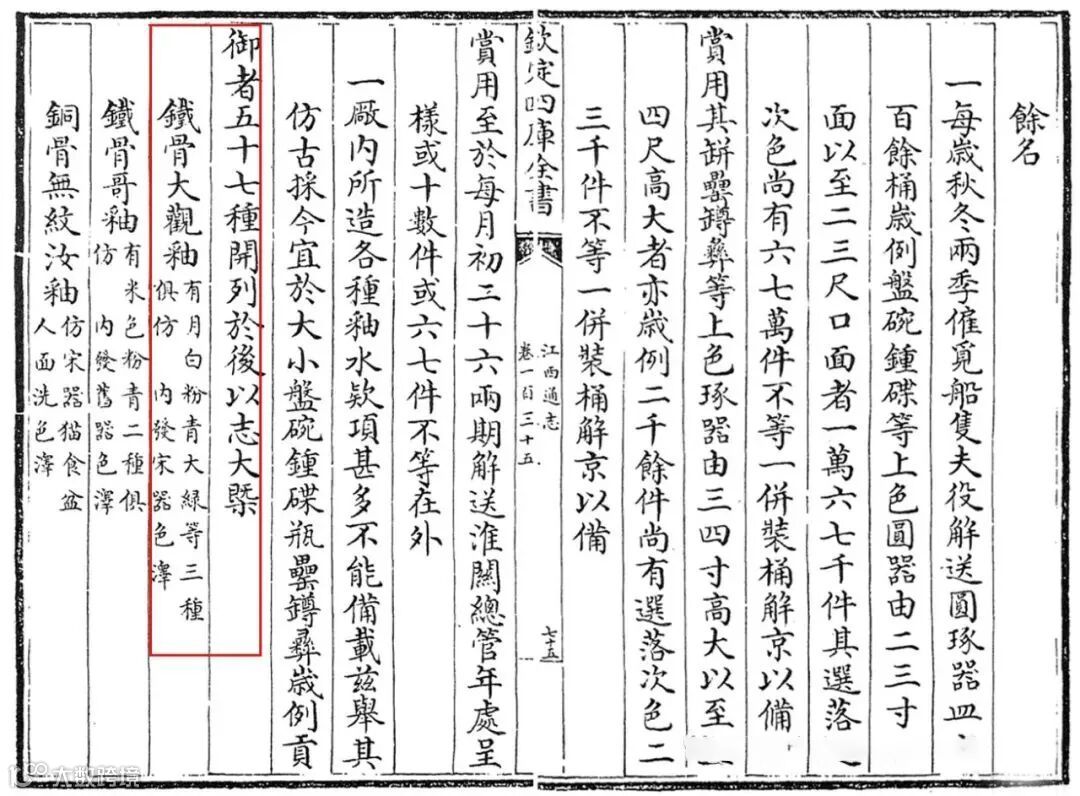 餘名
一每歲秋冬兩季僱覓船隻夫役解送圓琢器皿
百餘桶歲例盤碗鍾碟等上色圓器由二三寸
面以至二三尺口面者一萬六七千件其選落
次色尚有六七萬件不等一併裝桶解京以備
賞用其缾罍罇彝等上色琢器由三四寸高大以至
四尺高大者亦歲例二千餘件尚有選落次色二
三千件不等一併裝桶解京以備
欽定四庫全書
江西通志
卷一百三十五
七十五
賞用至於每月初二十六兩期解送淮關總管年處呈
樣或十數件或六七件不等在外
一廠内所造各種釉水欵項甚多不能備載兹舉其
仿古採今宜於大小盤碗鍾碟瓶罍罇彝歲例貢
御者五十七種開列於後以志大槩
鐵骨大觀釉
有月白粉青大綠等三種
俱仿内發宋器色澤
鐵骨哥釉
有米色粉青二種俱
仿内發舊器色澤
銅骨無紋汝釉
仿宋器猫食盆
人面洗色澤
大数跨境